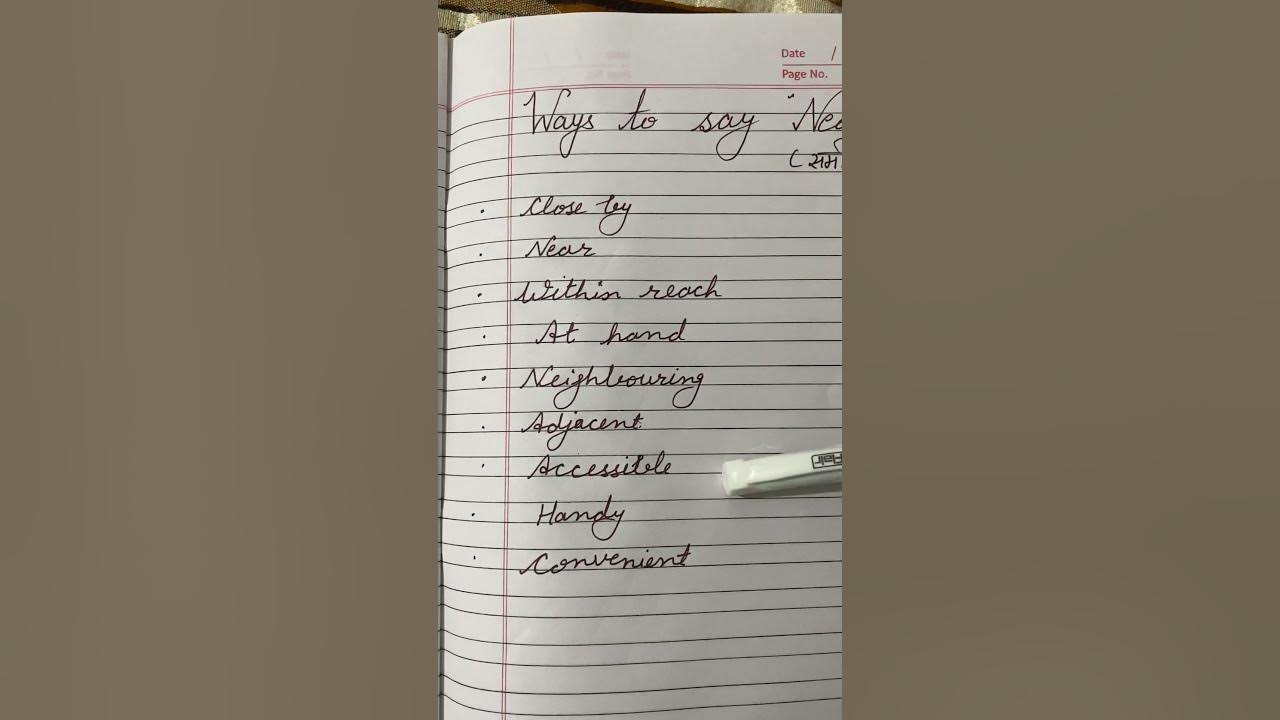 Date /
Page No.
Ways to say "Nea
( सम
Close by
Near
Within reach
At hand
Neighbouring
Adjacent
Accessible
Handy
Convenient